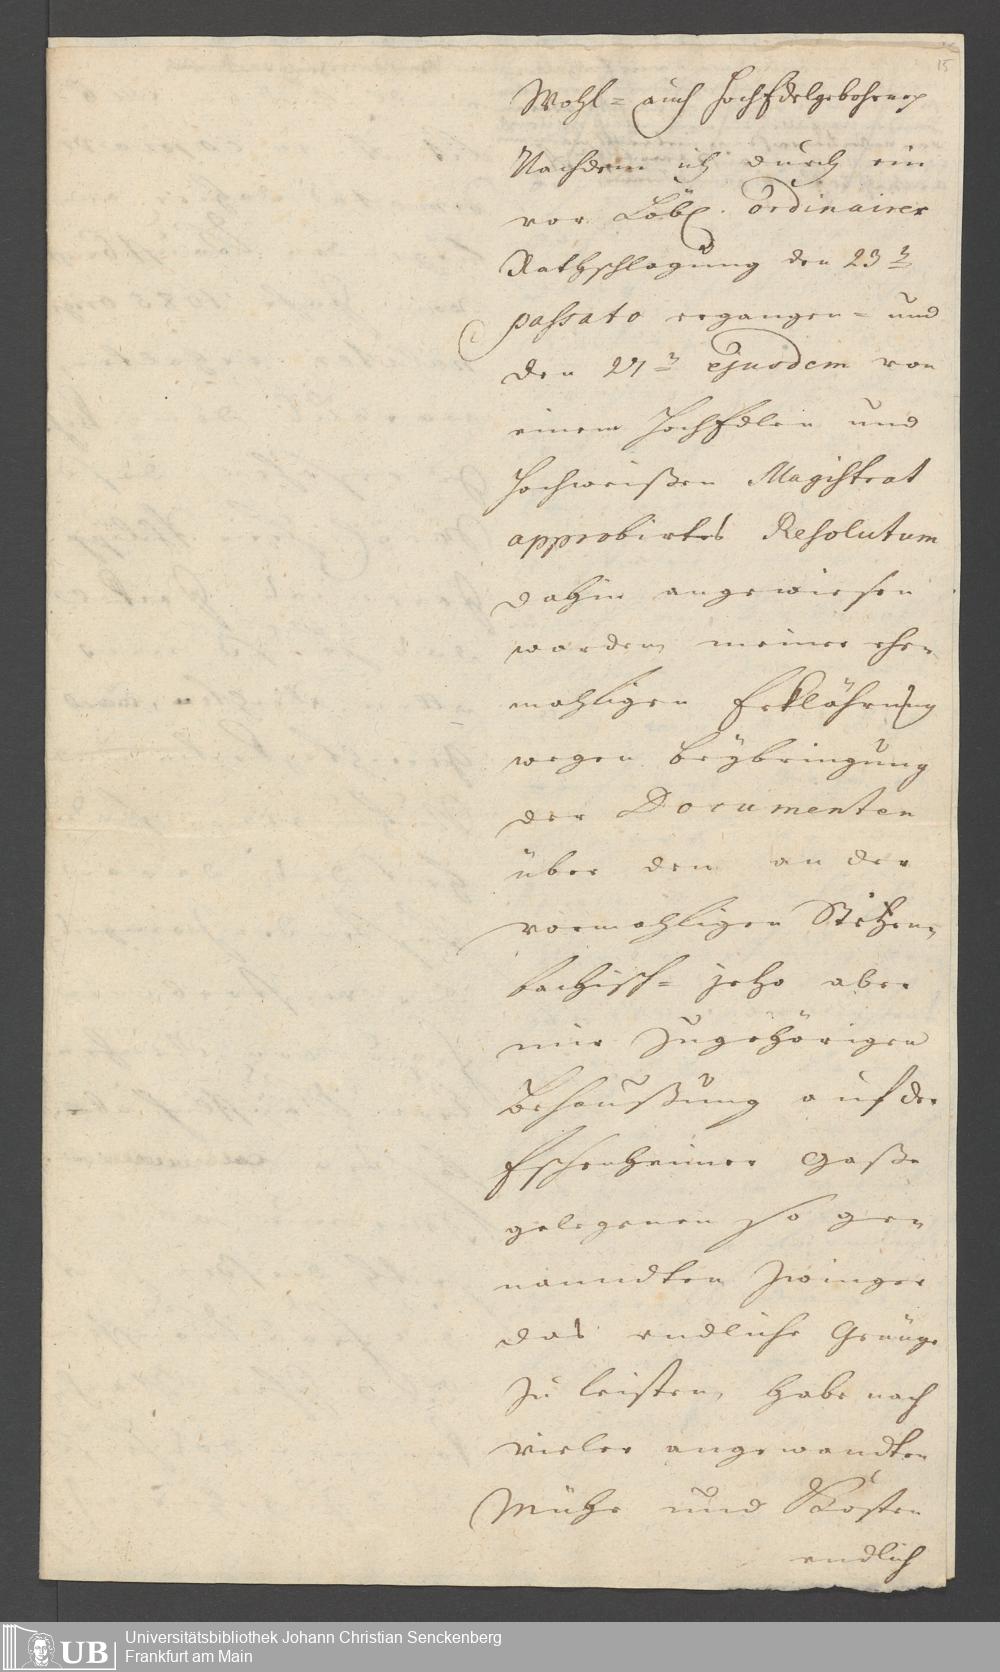 15
Wohl- auch HochEdelgebohrne
Nachdem ich durch ein
vor Löbl. ordinairer
Rathschlagung den 23ten
passato ergangen- und
den 24ten ejusdem von
einem HochEdlen und
Hochweißen Magistrat
approbirtes Resolutum
dahin angewiesen
worden, meiner ehe-
mahligen Erklährung
wegen Beybringung
der Documenten
über den an der
vormahligen
bachisch- jetzo aber
mir zugehörigen
Behaußung auf der
Eschenheimer Gaße
gelegenen so ge-
nanndten Zwinger
das endliche Genüge
zu leisten, habe nach
vieler angewandten
Mühe und Kosten
endlich
UB
Universitätsbibliothek Johann Christian Senckenberg
Frankfurt am Main